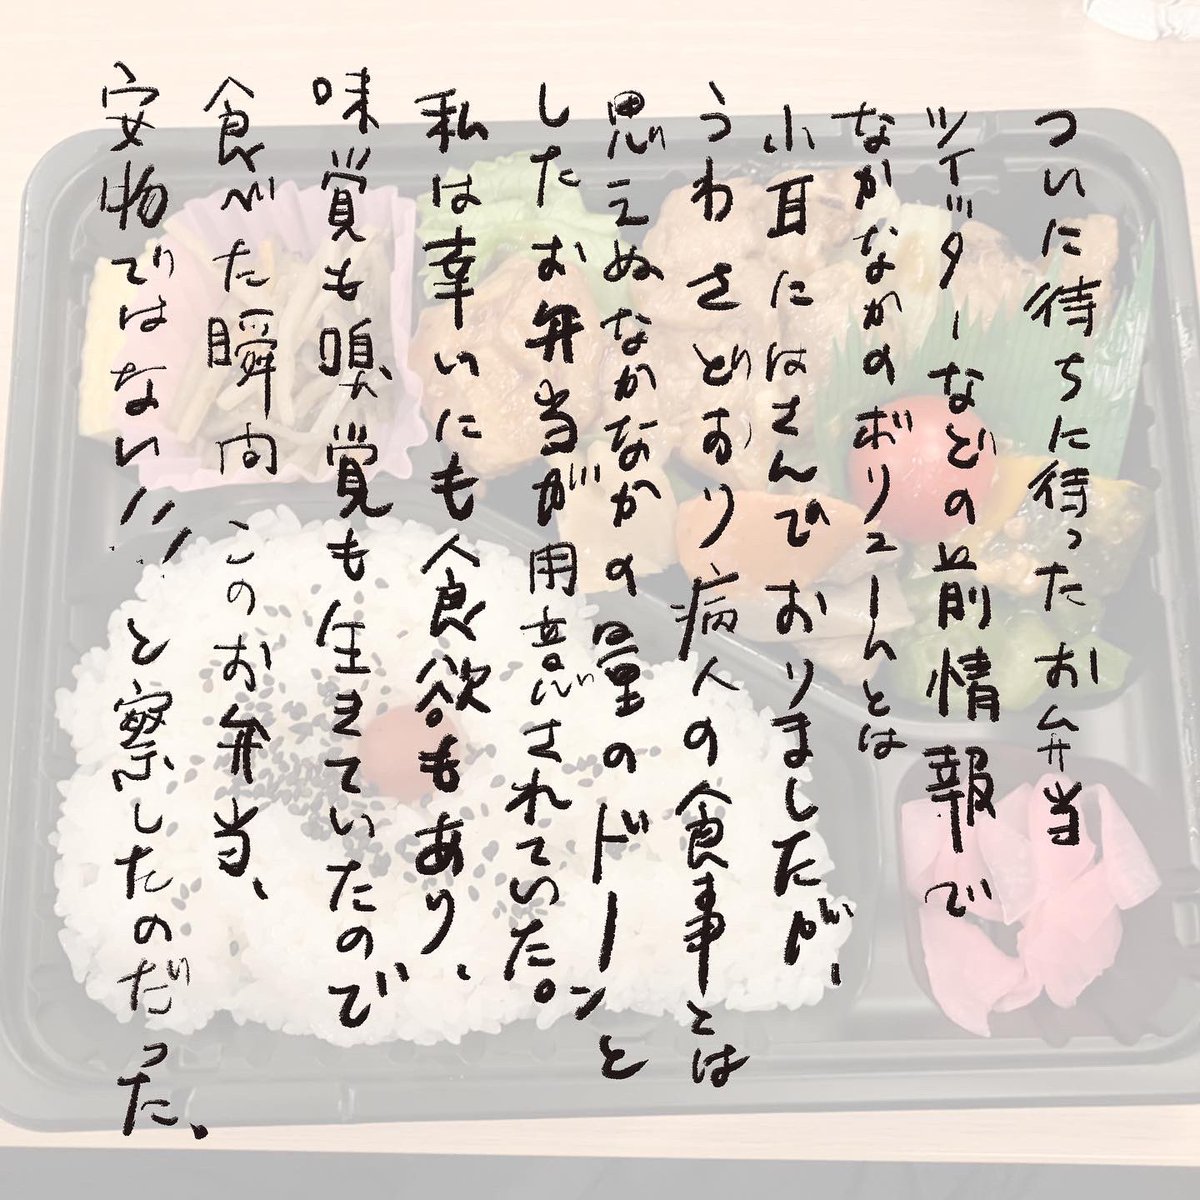 ついに待ちに待ったお弁当
ツイッターなどの前情報で
なかなかのボリュームとは
小耳にはさんでおりましたが、
うわさどおり病人の食事とは
思えぬなかなかの量のドーンと
したお弁当が用意されていた。
私は幸いにも食欲もあり、
味覚も嗅覚も生きていたので
食べた瞬間このお弁当、
安物ではない!!と察したのだった、